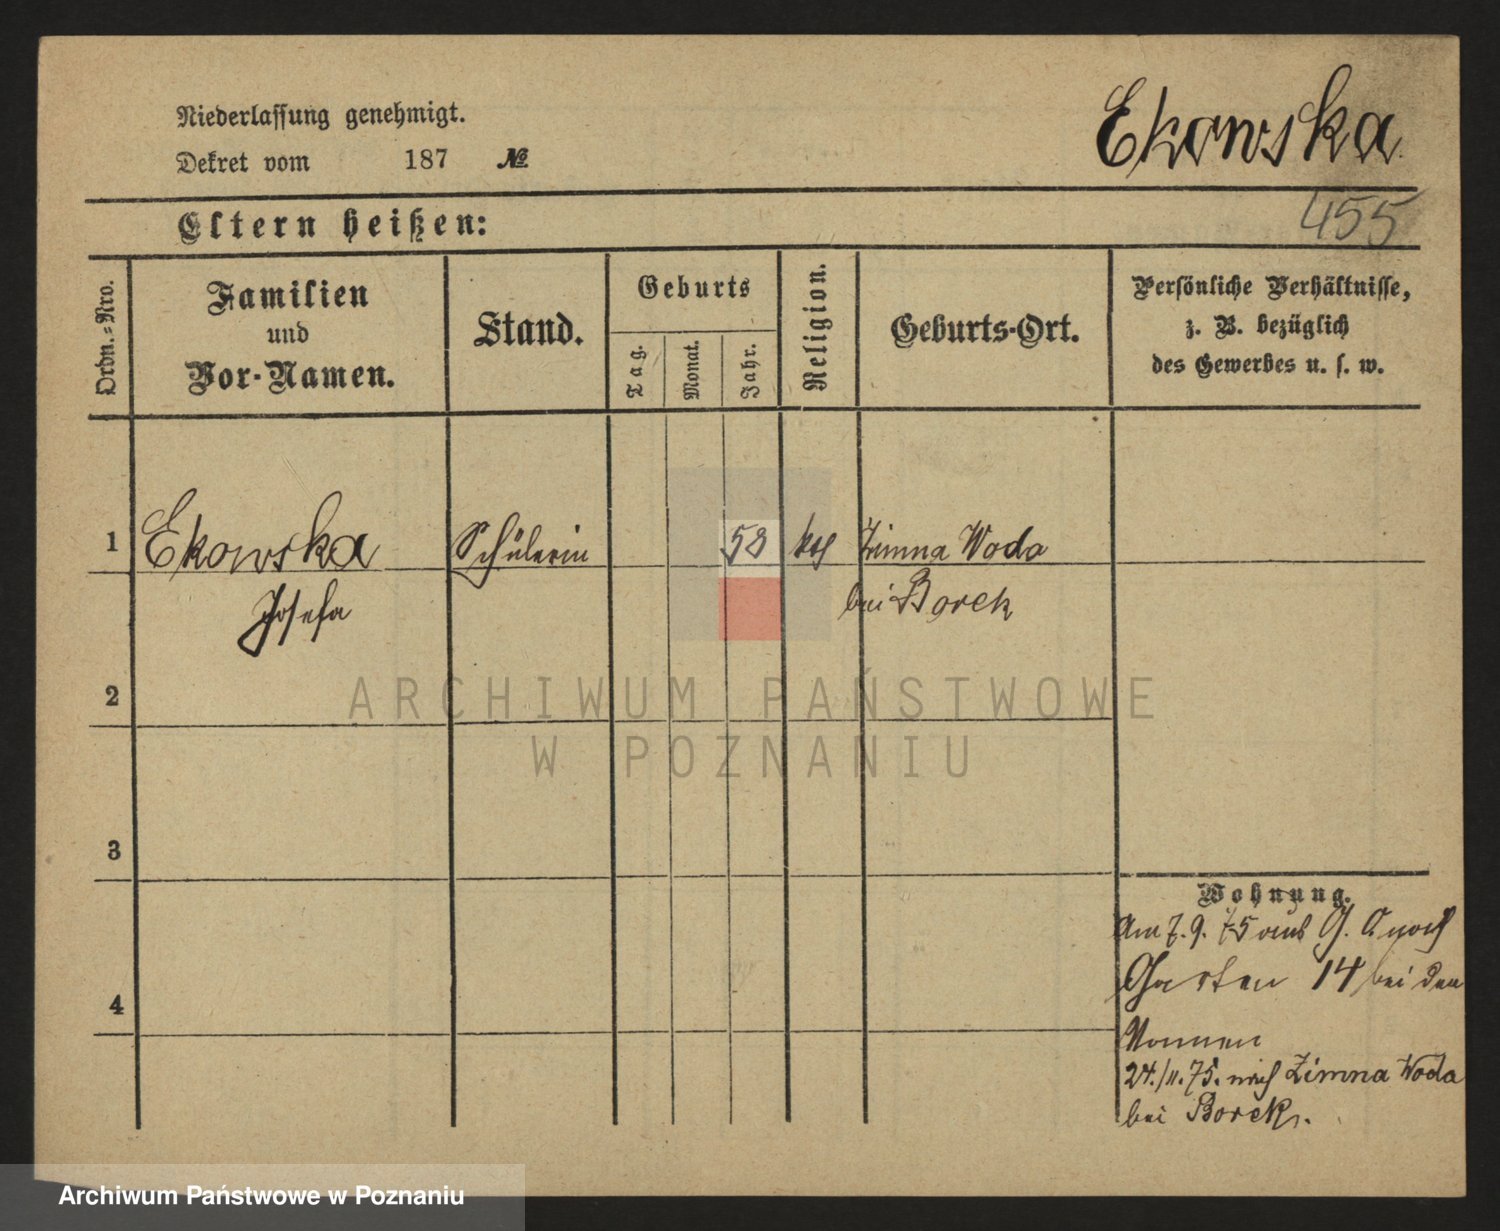 Niederlassung genehmigt.
Dekret vom 187 №
Ekowska
455
Eltern heißen:
Ordn.-Nro.
Familien und Vor-Namen.
Stand.
Geburts
Tag.
Monat.
Jahr.
Religion.
Geburts-Ort.
Persönliche Verhältnisse,
z. B. bezüglich
des Gewerbes u. s. w.
1 Ekowska Schülerin 58 Zimna Woda
Josefa bei Borek
2
3
4
Wohnung.
Am 7. 9. 75 G.
Garten 14 bei den
Nonnen
24./11. 75. nach Zimna Woda
bei Borek.
ARCHIWUM PAŃSTWOWE
W POZNANIU
Archiwum Państwowe w Poznaniu